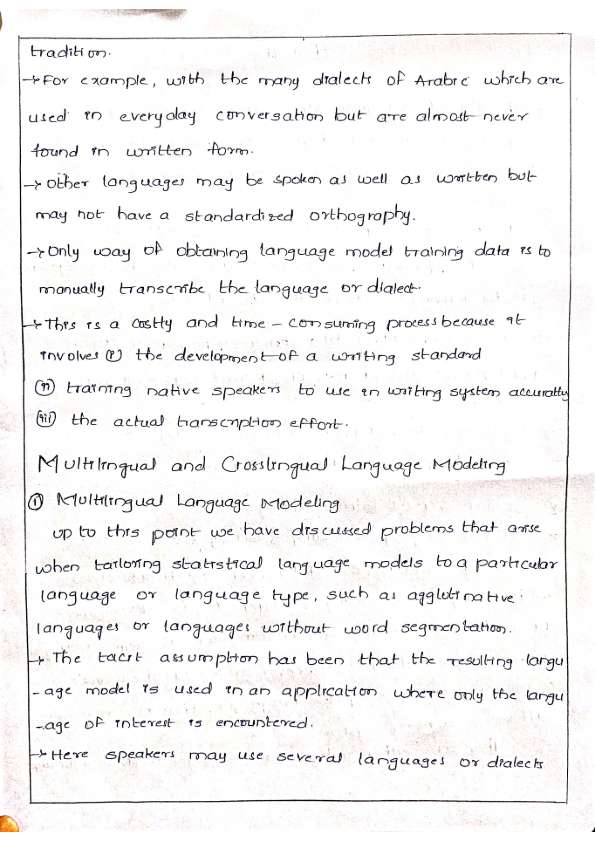 tradition.
→ For example, with the many dialects of Arabic which are
used in everyday conversation but are almost never
found in written form.
→ Other languages may be spoken as well as written but
may not have a standardized orthography.
→ Only way of obtaining language model training data is to
manually transcribe the language or dialect.
→ This is a costly and time - consuming process because it
involves (i) the development of a writing standard
(ii) training native speakers to use in writing system accuratly
(iii) the actual transcription effort.
Multilingual and Crosslingual Language Modeling
① Multilingual Language Modeling
up to this point we have discussed problems that arise
when tailoring statistical language models to a particular
language or language type, such as agglutinative
languages or languages without word segmentation.
→ The tacit assumption has been that the resulting langu
-age model is used in an application where only the langu
-age of interest is encountered.
→ Here speakers may use several languages or dialects